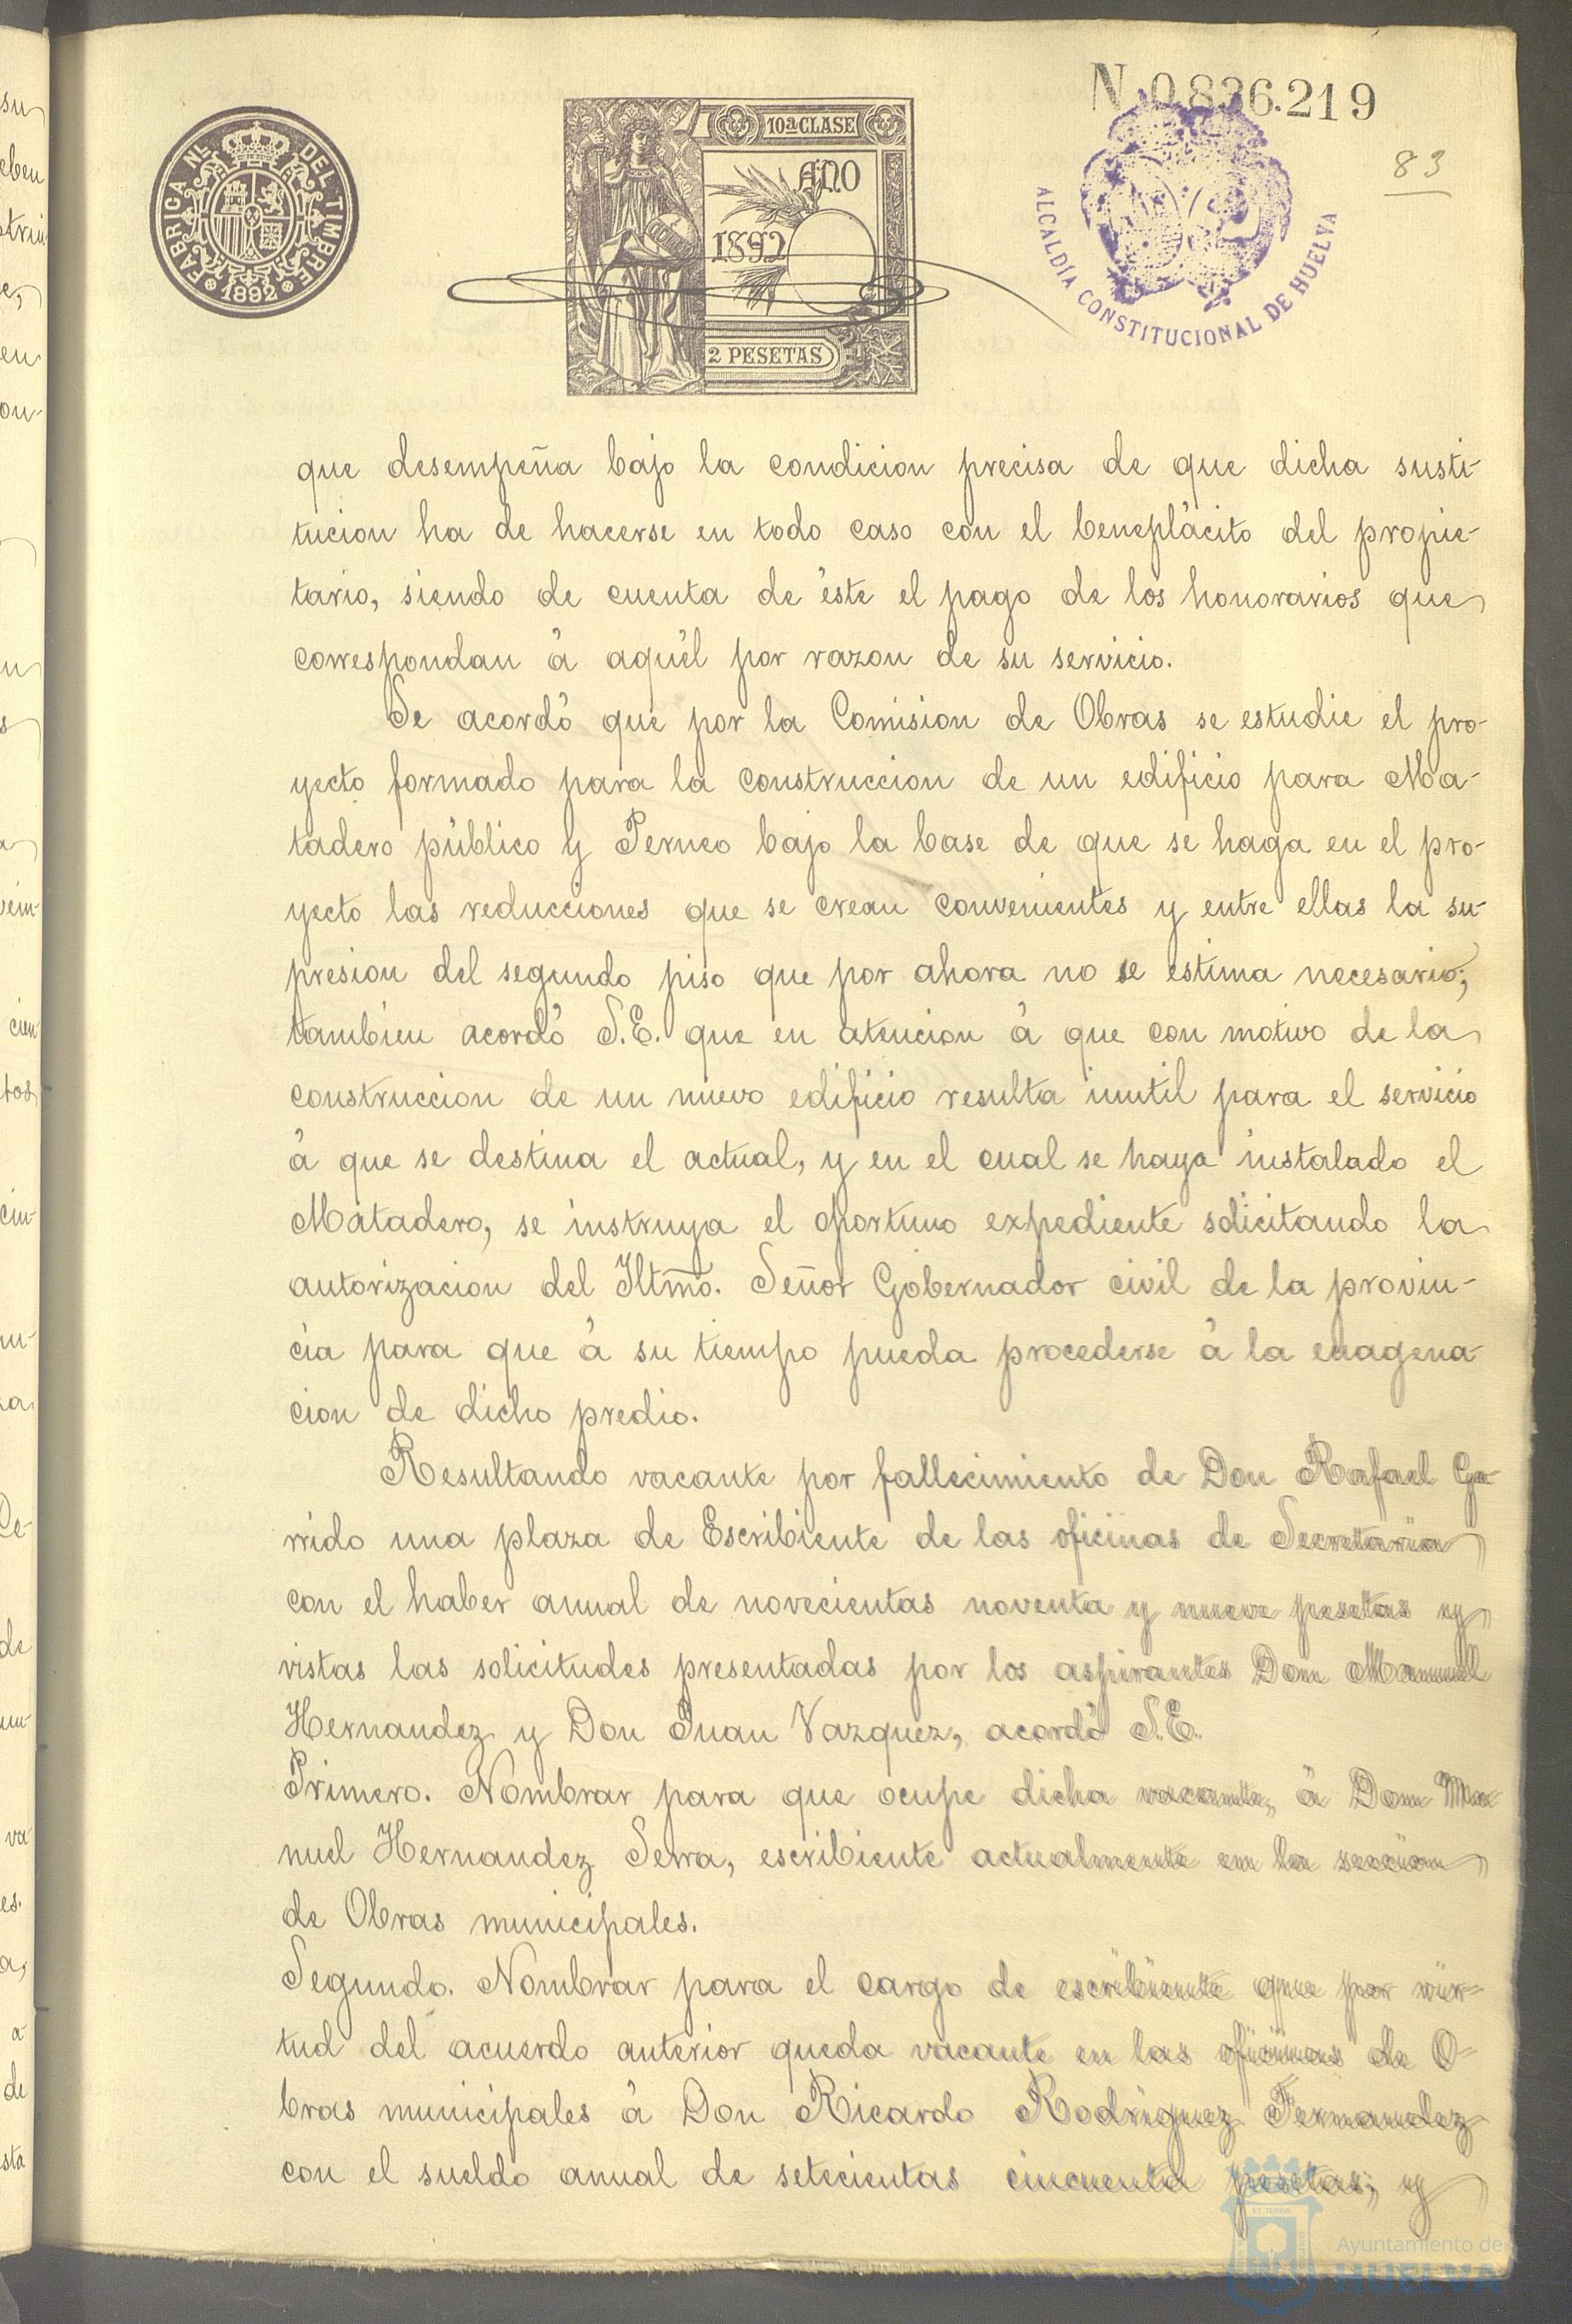 N. 0.826.219
83
FÁBRICA NL. DEL TIMBRE
1892
10ª CLASE
AÑO
1892
2 PESETAS
ALCALDÍA CONSTITUCIONAL DE HUELVA
que desempeña bajo la condicion precisa de que dicha susti-
tucion ha de hacerse en todo caso con el beneplácito del propie-
tario, siendo de cuenta de éste el pago de los honorarios que
correspondan á aquél por razon de su servicio.
Se acordó que por la Comision de Obras se estudie el pro-
yecto formado para la construccion de un edificio para Ma-
tadero público y Perneo bajo la base de que se haga en el pro-
yecto las reducciones que se crean convenientes y entre ellas la su-
presion del segundo piso que por ahora no se estima necesario;
tambien acordó S.E. que en atencion á que con motivo de la
construccion de un nuevo edificio resulta inutil para el servicio
á que se destina el actual, y en el cual se haya instalado el
Matadero, se instruya el oportuno expediente solicitando la
autorizacion del Iltmo. Señor Gobernador civil de la provin-
cia para que á su tiempo pueda procederse á la enagena-
cion de dicho predio.
Resultando vacante por fallecimiento de Don Rafael Ga-
rrido una plaza de Escribiente de las oficinas de Secretaria
con el haber anual de novecientas noventa y nueve pesetas y
vistas las solicitudes presentadas por los aspirantes Don Manuel
Hernandez y Don Juan Vazquez, acordó S.E.
Primero. Nombrar para que ocupe dicha vacante, á Don Ma-
nuel Hernandez Serra, escribiente actualmente en la seccion
de Obras municipales.
Segundo. Nombrar para el cargo de escribiente que por vir-
tud del acuerdo anterior queda vacante en las oficinas de O-
bras municipales á Don Ricardo Rodriguez Fernandez
con el sueldo anual de setecientas cincuenta pesetas; y
Ayuntamiento de
HUELVA